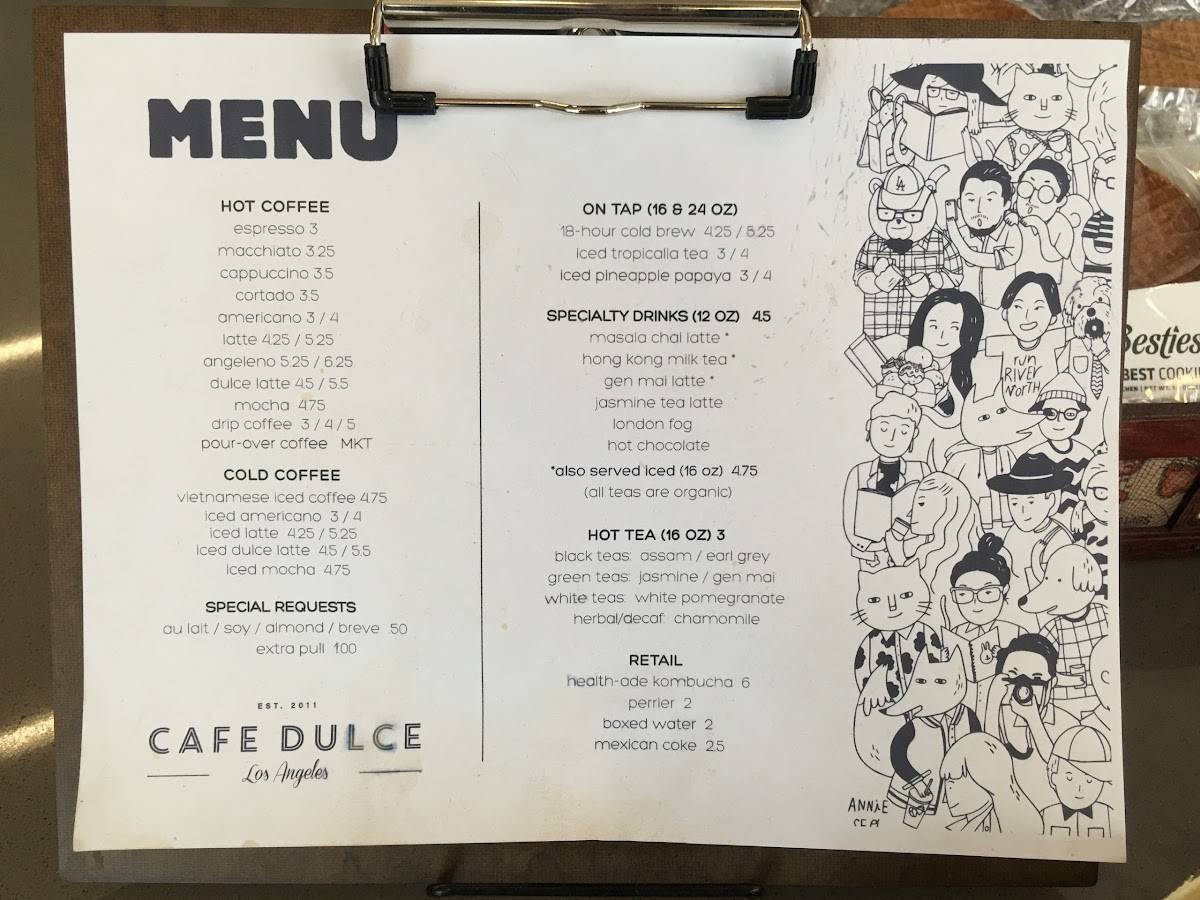 MENU
HOT COFFEE
espresso 3
macchiato 3.25
cappuccino 3.5
cortado 3.5
americano 3 / 4
latte 4.25 / 5.25
angeleno 5.25 / 6.25
dulce latte 4.5 / 5.5
mocha 4.75
drip coffee 3 / 4 / 5
pour-over coffee MKT
COLD COFFEE
vietnamese iced coffee 4.75
iced americano 3 / 4
iced latte 4.25 / 5.25
iced dulce latte 4.5 / 5.5
iced mocha 4.75
SPECIAL REQUESTS
au lait / soy / almond / breve .50
extra pull 1.00
EST. 2011
CAFE DULCE
Los Angeles
ON TAP (16 & 24 OZ)
18-hour cold brew 4.25 / 5.25
iced tropicalia tea 3 / 4
iced pineapple papaya 3 / 4
SPECIALTY DRINKS (12 OZ) 4.5
masala chai latte *
hong kong milk tea *
gen mai latte *
jasmine tea latte
london fog
hot chocolate
*also served iced (16 oz) 4.75
(all teas are organic)
HOT TEA (16 OZ) 3
black teas: assam / earl grey
green teas: jasmine / gen mai
white teas: white pomegranate
herbal/decaf: chamomile
RETAIL
health-ade kombucha 6
perrier 2
boxed water 2
mexican coke 2.5
LA
run
RIVER
NORTH
ANNiE
Besties
BEST COOKI